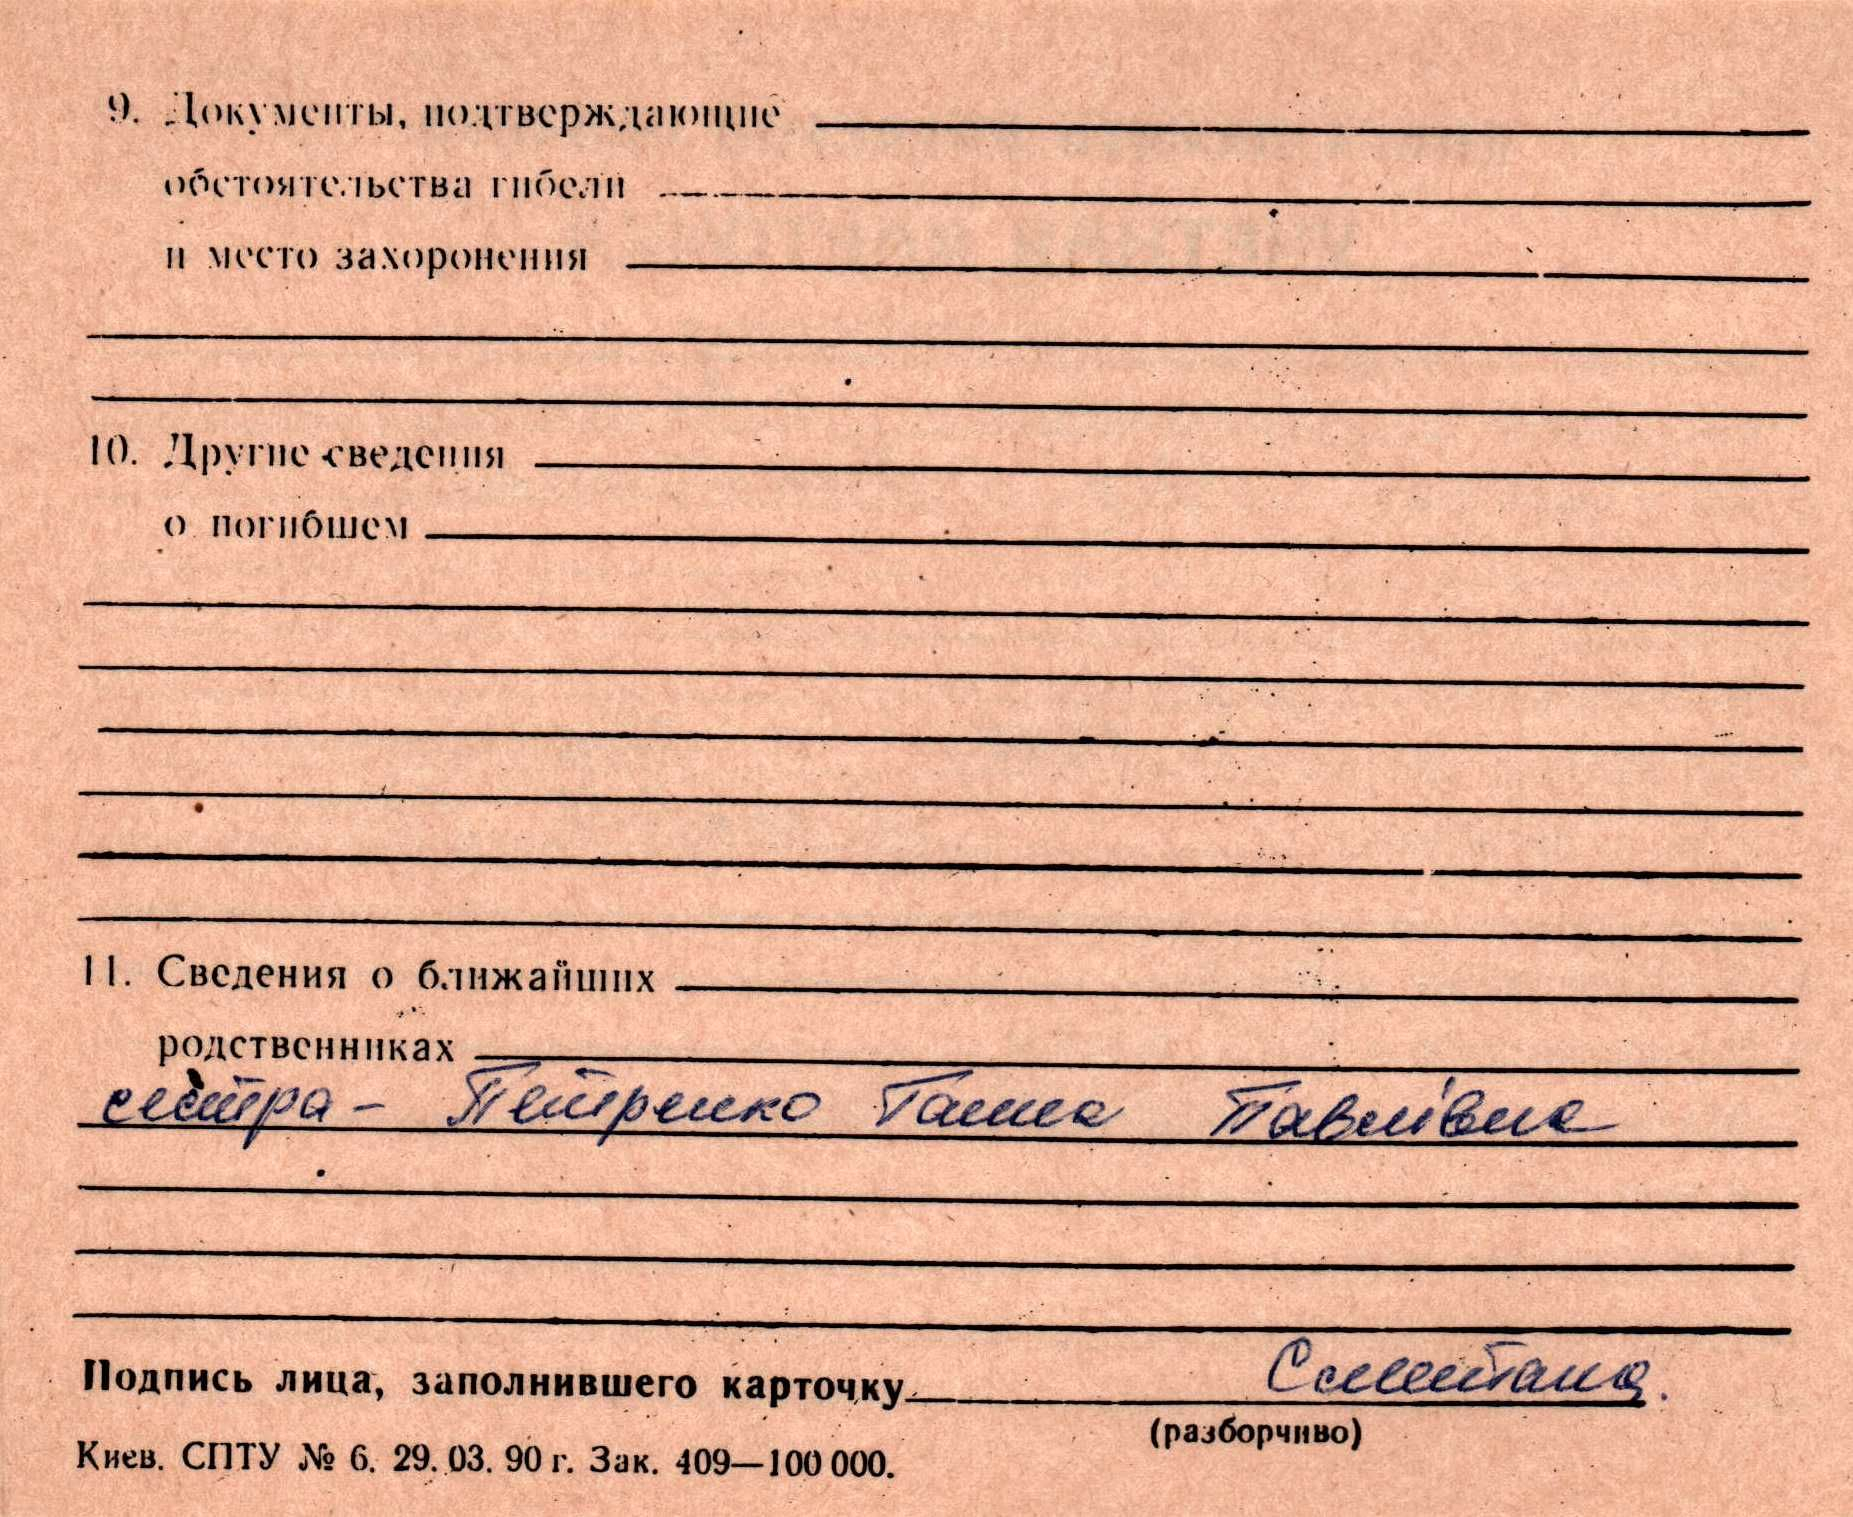 9. Документы, подтверждающие
обстоятельства гибели
и место захоронения
10. Другие сведения
о погибшем
11. Сведения о ближайших
родственниках
сестра - Петренко Ганна Павлівна
Подпись лица, заполнившего карточку Сметана.
(разборчиво)
Киев. СПТУ № 6. 29. 03. 90 г. Зак. 409—100 000.